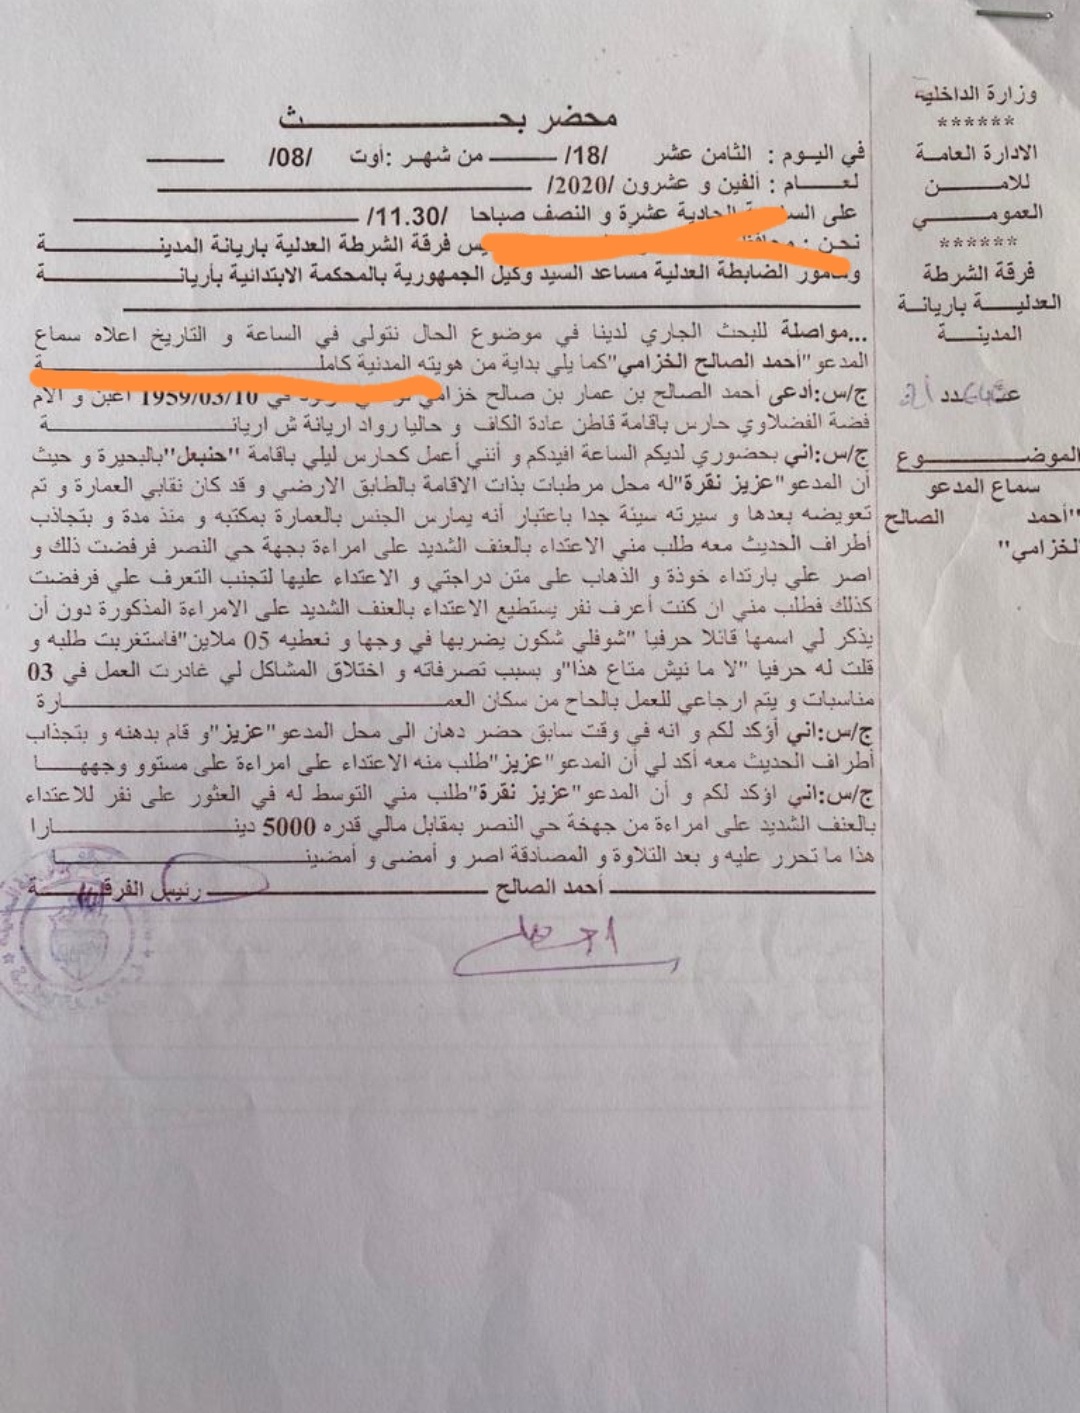 وزارة الداخلية
******
الادارة العامــة
للامـــــــن
العمومــــي
******
فرقة الشرطة
العدليــــة باريانة
المدينــــة
الموضـــــــــوع
سماع المدعو
"أحمد الصالح
الخزامي"
محضر بحـــــــــــــث
في اليوم : الثامن عشر /18/ ــــــ من شهر :أوت /08/ ــــــ
لعــــام : ألفين و عشرون /2020/ ــــــــــــــــ
على الحادية عشرة و النصف صباحا /11.30/ ــــــــــــــــ
نحن : فرقة الشرطة العدلية باريانة المدينـــــــــة
ومأمور الضابطة العدلية مساعد السيد وكيل الجمهورية بالمحكمة الابتدائية بأريانـــــــــة
...مواصلة للبحث الجاري لدينا في موضوع الحال نتولى في الساعة و التاريخ اعلاه سماع
المدعو"أحمد الصالح الخزامي"كما يلي بداية من هويته المدنية كاملـــــــــــــــة
ج/س:أدعى أحمد الصالح بن عمار بن صالح خزامي في 1959/03/10 أعبن و الام
فضة الفضلاوي حارس باقامة قاطن عادة الكاف و حاليا رواد اريانة ش اريانـــــــــــة
ج/س:اني بحضوري لديكم الساعة افيدكم و أنني أعمل كحارس ليلي باقامة "حنبعل"بالبحيرة و حيث
أن المدعو"عزيز نقرة"له محل مرطبات بذات الاقامة بالطابق الارضي و قد كان نقابي العمارة و تم
تعويضه بعدها و سيرته سيئة جدا باعتبار أنه يمارس الجنس بالعمارة بمكتبه و منذ مدة و بتجاذب
أطراف الحديث معه طلب مني الاعتداء بالعنف الشديد على امراءة بجهة حي النصر فرفضت ذلك و
اصر علي بارتداء خوذة و الذهاب على متن دراجتي و الاعتداء عليها لتجنب التعرف علي فرفضت
كذلك فطلب مني ان كنت أعرف نفر يستطيع الاعتداء بالعنف الشديد على الامراءة المذكورة دون أن
يذكر لي اسمها قائلا حرفيا "شوفلي شكون يضربها في وجها و نعطيه 05 ملاين"فاستغربت طلبه و
قلت له حرفيا "لا ما نيش متاع هذا"و بسبب تصرفاته و اختلاق المشاكل لي غادرت العمل في 03
مناسبات و يتم ارجاعي للعمل بالحاح من سكان العمـــــــــــــارة
ج/س:اني أؤكد لكم و انه في وقت سابق حضر دهان الى محل المدعو"عزيز"و قام بدهنه و بتجذاب
أطراف الحديث معه أكد لي أن المدعو"عزيز"طلب منه الاعتداء على امراءة على مستوو وجههـــــا
ج/س:اني اؤكد لكم و أن المدعو"عزيز نقرة"طلب مني التوسط له في العثور على نفر للاعتداء
بالعنف الشديد على امراءة من جهخة حي النصر بمقابل مالي قدره 5000 دينـــــــــــــارا
هذا ما تحرر عليه و بعد التلاوة و المصادقة اصر و أمضى و أمضينـــــــــــــــا
ــــــــــــ أحمد الصالح ــــــــــــ رئيس الفرقـــــــة